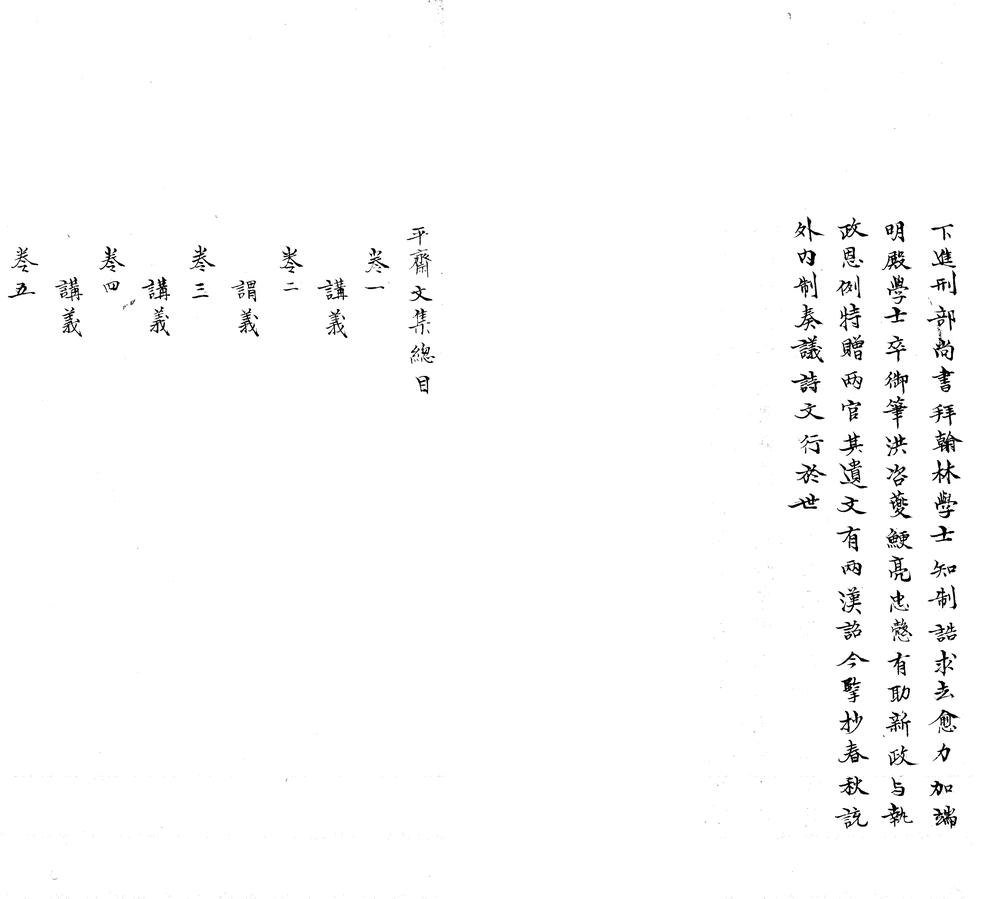 下進刑部尚書拜翰林學士知制誥求去愈力加端
明殿學士卒御筆洪咨夔鯁亮忠慤有助新政与執
政恩例特贈兩官其遺文有兩漢詔令擥抄春秋說
外内制奏議詩文行於世
平齋文集總目
卷一
講義
卷二
謂義
卷三
講義
卷四
講義
卷五